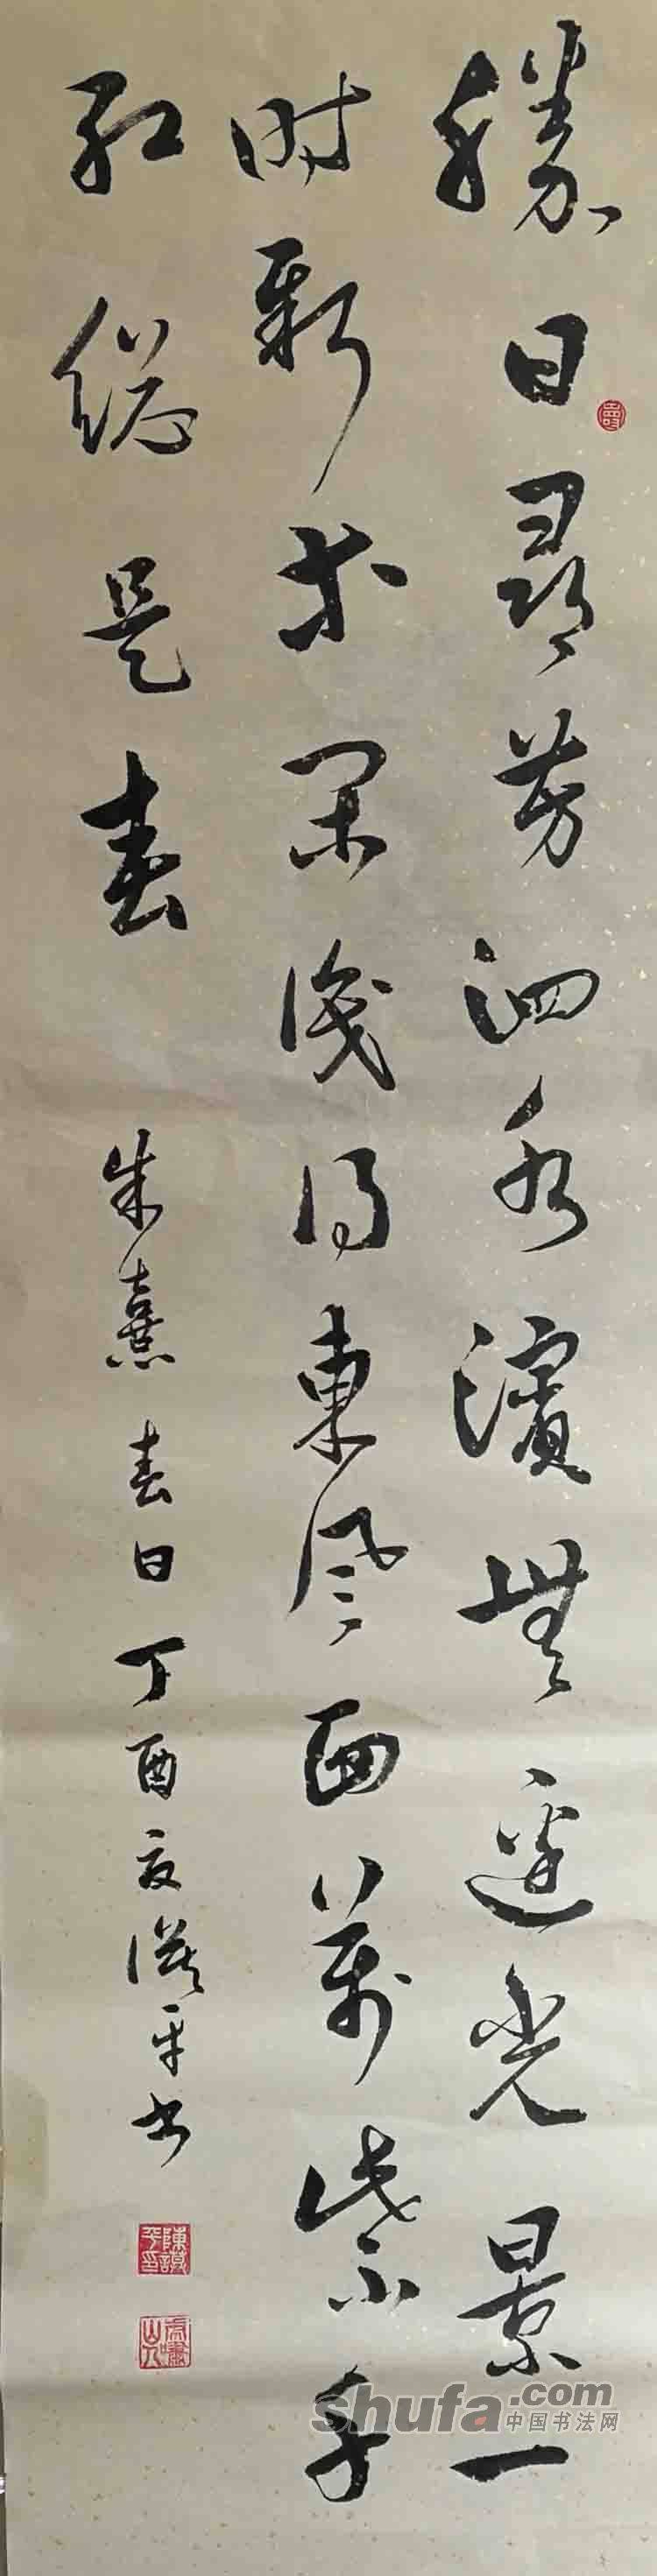 勝日尋芳泗水濱無邊光景一
時新等閑識得東風面萬紫千
紅總是春
朱熹春日丁酉夏謨平書
陳謨平印
shufa.com
中国书法网